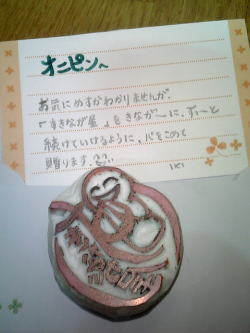 オニピンへ
お気にめすかわかりませんが、
「すきなが屋」をきなが〜に、ず〜っと
続けていけるように、心をこめて
贈ります。